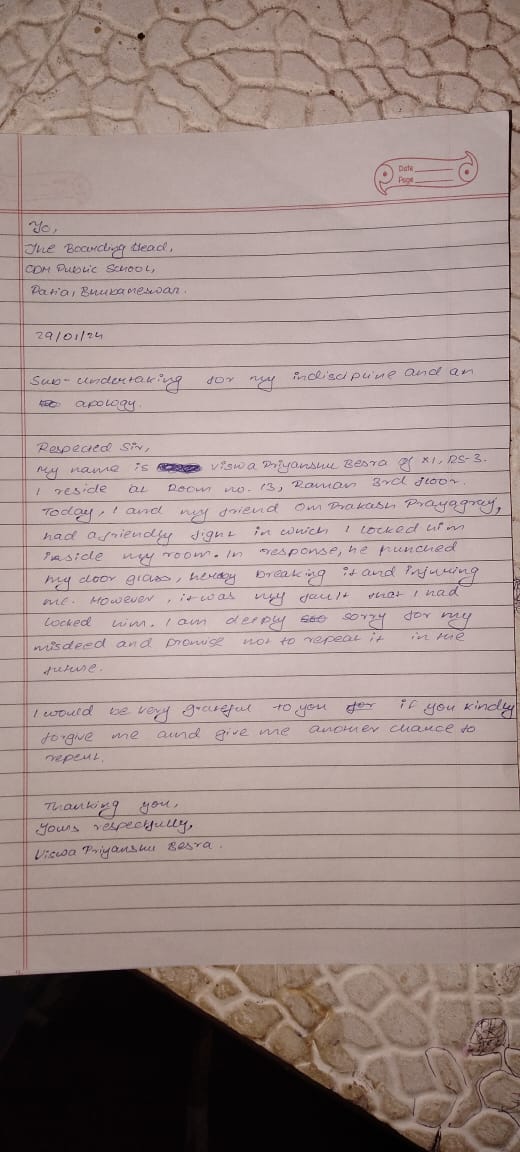 Date
Page
To,
The Boarding Head,
ODM Public School,
Patia, Bhubaneswar.
29/01/24
Sub- Undertaking for my indiscipline and an
apology.
Respected Sir,
My name is Viswa Priyanshu Besra of XI, RS-3.
I reside at Room no. 13, Raman 3rd floor.
Today, I and my friend Om Prakash Prayagray,
had a friendly fight in which I locked him
inside my room. In response, he punched
my door glass, hereby breaking it and injuring
me. However, it was my fault that I had
locked him. I am deeply sorry for my
misdeed and promise not to repeat it in the
future.
I would be very grateful to you if you kindly
forgive me aund give me another chance to
repent.
Thanking you,
Yours respectfully,
Viswa Priyanshu Besra.